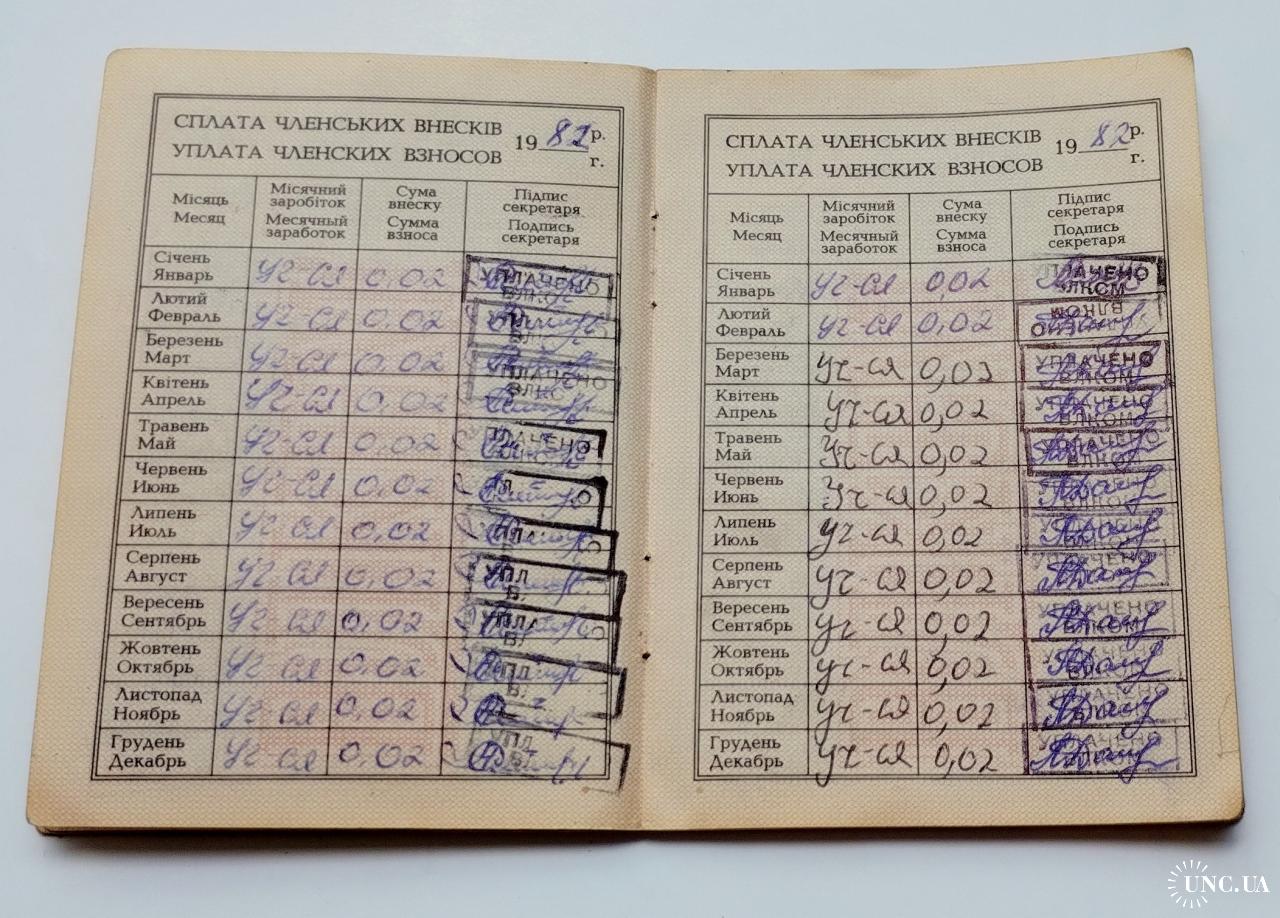 СПЛАТА ЧЛЕНСЬКИХ ВНЕСКІВ 1982 р.
УПЛАТА ЧЛЕНСКИХ ВЗНОСОВ г.
Місяць Місячний заробіток Сума внеску Підпис секретаря
Месяц Месячный заработок Сумма взноса Подпись секретаря
Січень Январь Уч-ся 0.02 УПЛАЧЕНО ВЛКСМ
Лютий Февраль Уч-ся 0.02
Березень Март Уч-ся 0.02
Квітень Апрель Уч-ся 0.02 УПЛАЧЕНО
Травень Май Уч-ся 0.02 УПЛАЧЕНО
Червень Июнь Уч-ся 0.02
Липень Июль Уч-ся 0.02
Серпень Август Уч-ся 0.02
Вересень Сентябрь Уч-ся 0.02
Жовтень Октябрь Уч-ся 0.02
Листопад Ноябрь Уч-ся 0.02
Грудень Декабрь Уч-ся 0.02
СПЛАТА ЧЛЕНСЬКИХ ВНЕСКІВ 1982 р.
УПЛАТА ЧЛЕНСКИХ ВЗНОСОВ г.
Місяць Місячний заробіток Сума внеску Підпис секретаря
Месяц Месячный заработок Сумма взноса Подпись секретаря
Січень Январь Уч-ся 0,02 УПЛАЧЕНО ВЛКСМ
Лютий Февраль Уч-ся 0,02
Березень Март Уч-ся 0,02 УПЛАЧЕНО ВЛКСМ
Квітень Апрель Уч-ся 0,02 УПЛАЧЕНО ВЛКСМ
Травень Май Уч-ся 0,02 УПЛАЧЕНО ВЛКСМ
Червень Июнь Уч-ся 0,02
Липень Июль Уч-ся 0,02
Серпень Август Уч-ся 0,02
Вересень Сентябрь Уч-ся 0,02 УПЛАЧЕНО ВЛКСМ
Жовтень Октябрь Уч-ся 0,02 УПЛАЧЕНО
Листопад Ноябрь Уч-ся 0,02 УПЛАЧЕНО
Грудень Декабрь Уч-ся 0,02
UNC.UA